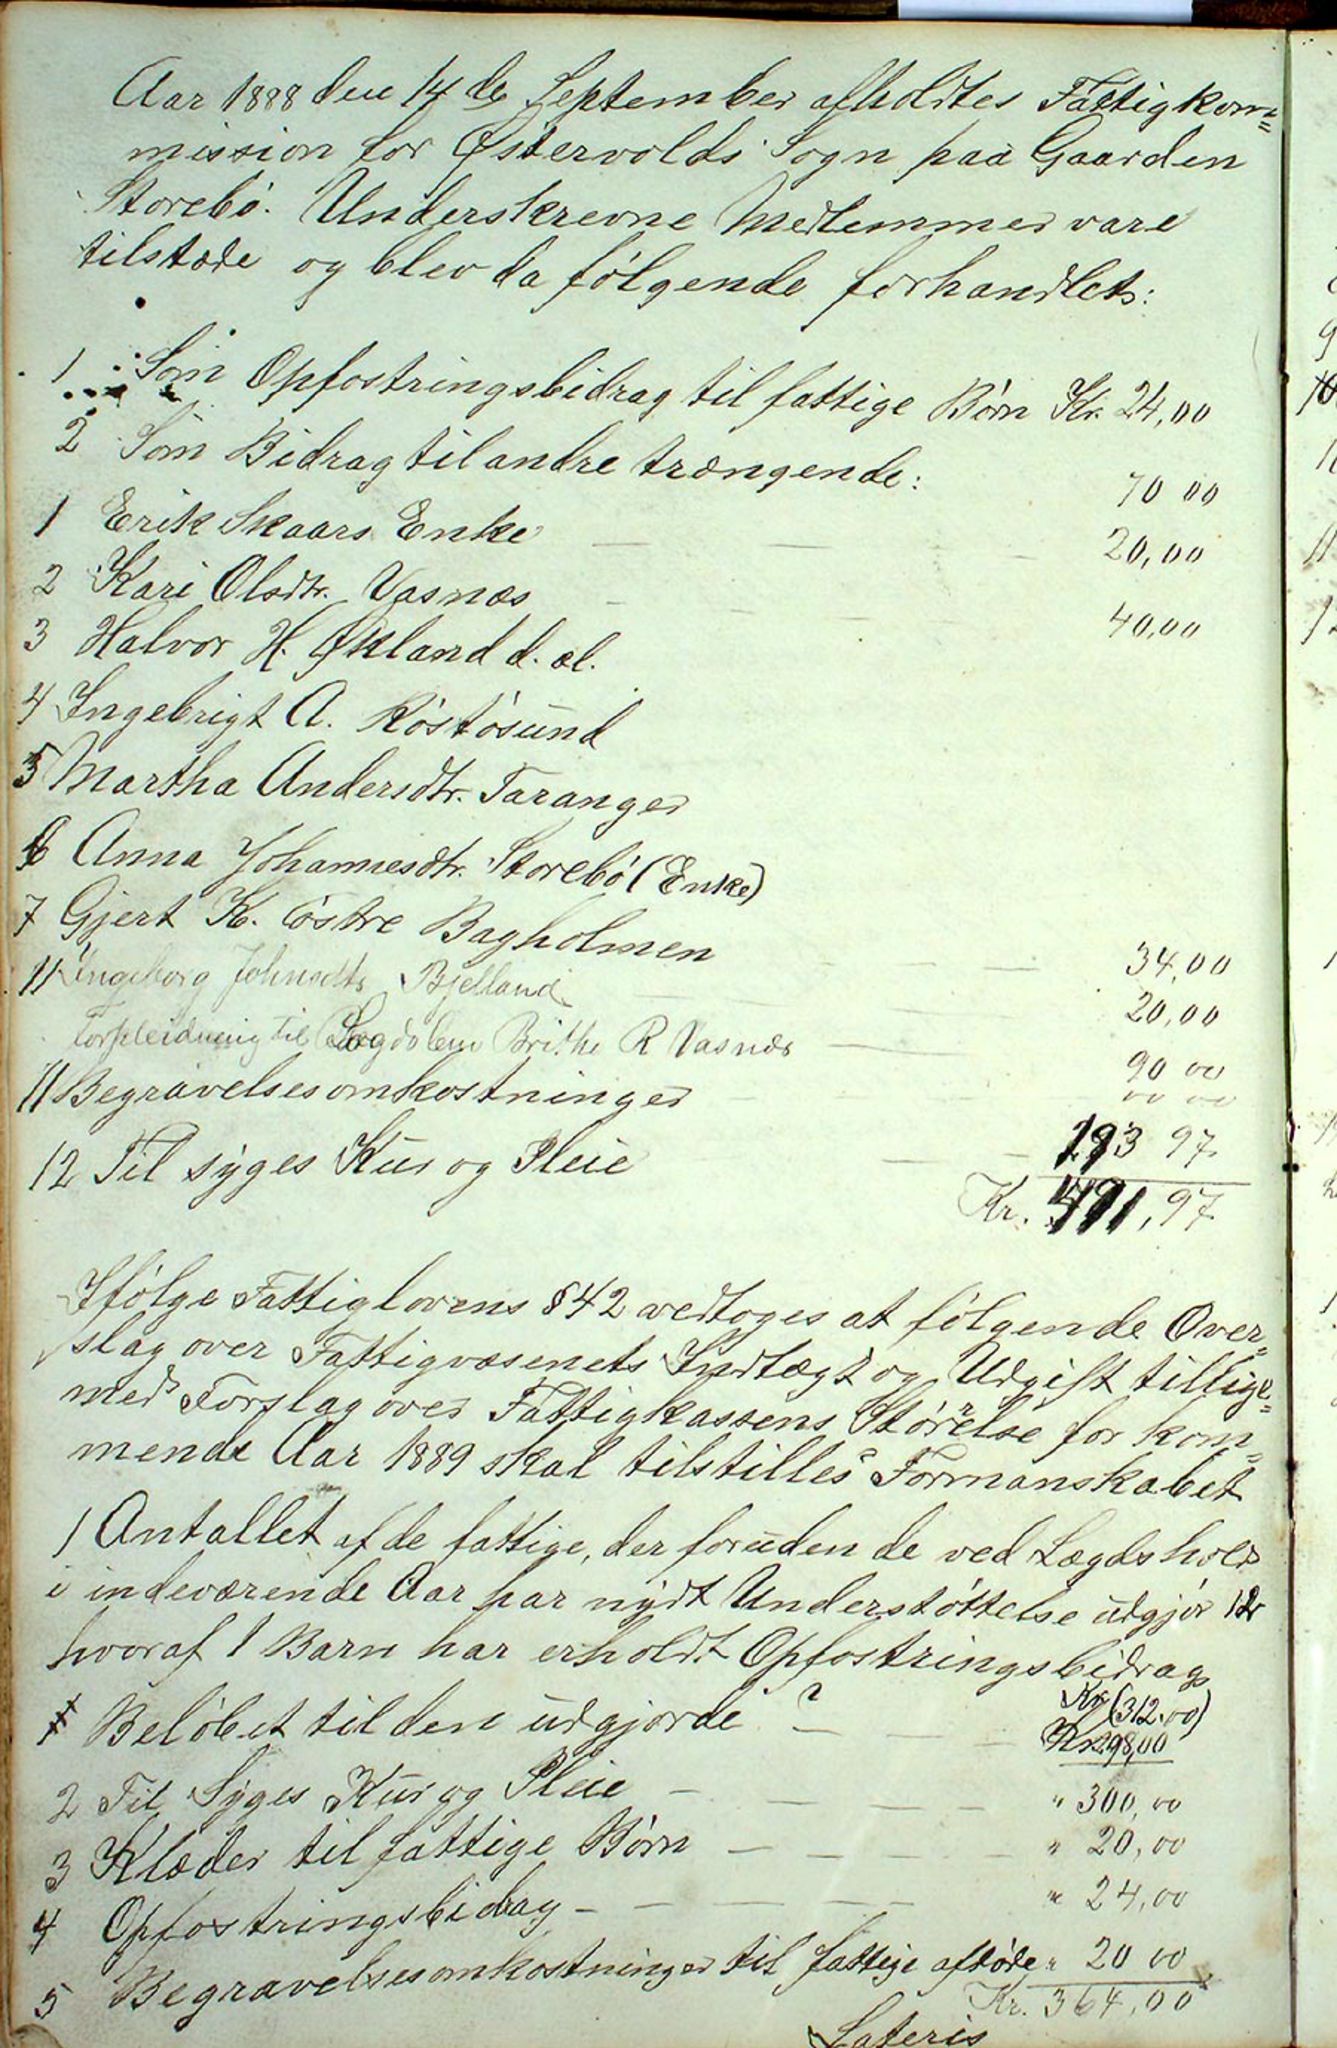 Aar 1888 den 14de September afholdtes Fattigkom=
mission for Østervolds Sogn paa Gaarden
Storebö. Underskrevne Medlemmer vare
tilstæde og blev da fölgende forhandlet:
1 Som Opfostringsbidrag til fattige Börn Kr. 24,00
2 Som Bidrag til andre trængende:
70 00
1 Erik Skaars Enke
20,00
2 Kari Olsdtr. Vasnæs
40,00
3 Halvor H. Økland d. æl.
4 Ingebrigt A. Röstösund
5 Martha Andersdtr. Taranger
6 Anna Johannesdtr. Storebö (Enke)
7 Gjert K. östre Bagholmen
34,00
11 Ingeborg Johnsdtr Bjelland
20,00
til Lægdslem Brithe R Vasnæs
90 00
11 Begravelsesomkostninger
00 00
12 Til syges Kur og Pleie 193 97
Kr. 491,97
Ifölge Fattiglovens §42 vedtoges at fölgende Over=
slag over Fattigvæsenets Indtægt og Udgift tillige=
med Forslag over Fattigkassens Störrelse for kom=
mende Aar 1889 skal tilstilles Formanskabet
1 Antallet af de fattige, der foruden de ved Lægdshold
i indeværende Aar har nydt Understöttelse udgjör 12
hvoraf 1 Barn har erholdt Opfostringsbidrag
Kr (312.00)
Belöbet til den udgjorde ? 298,00
2 Til Syges Kur og Pleie " 300,00
3 Klæder til fattige Börn " 20,00
4 Opfostringsbidrag " 24,00
5 Begravelsesomkostninger til fattige afdöde " 20 00
Kr. 364,00
Lateris